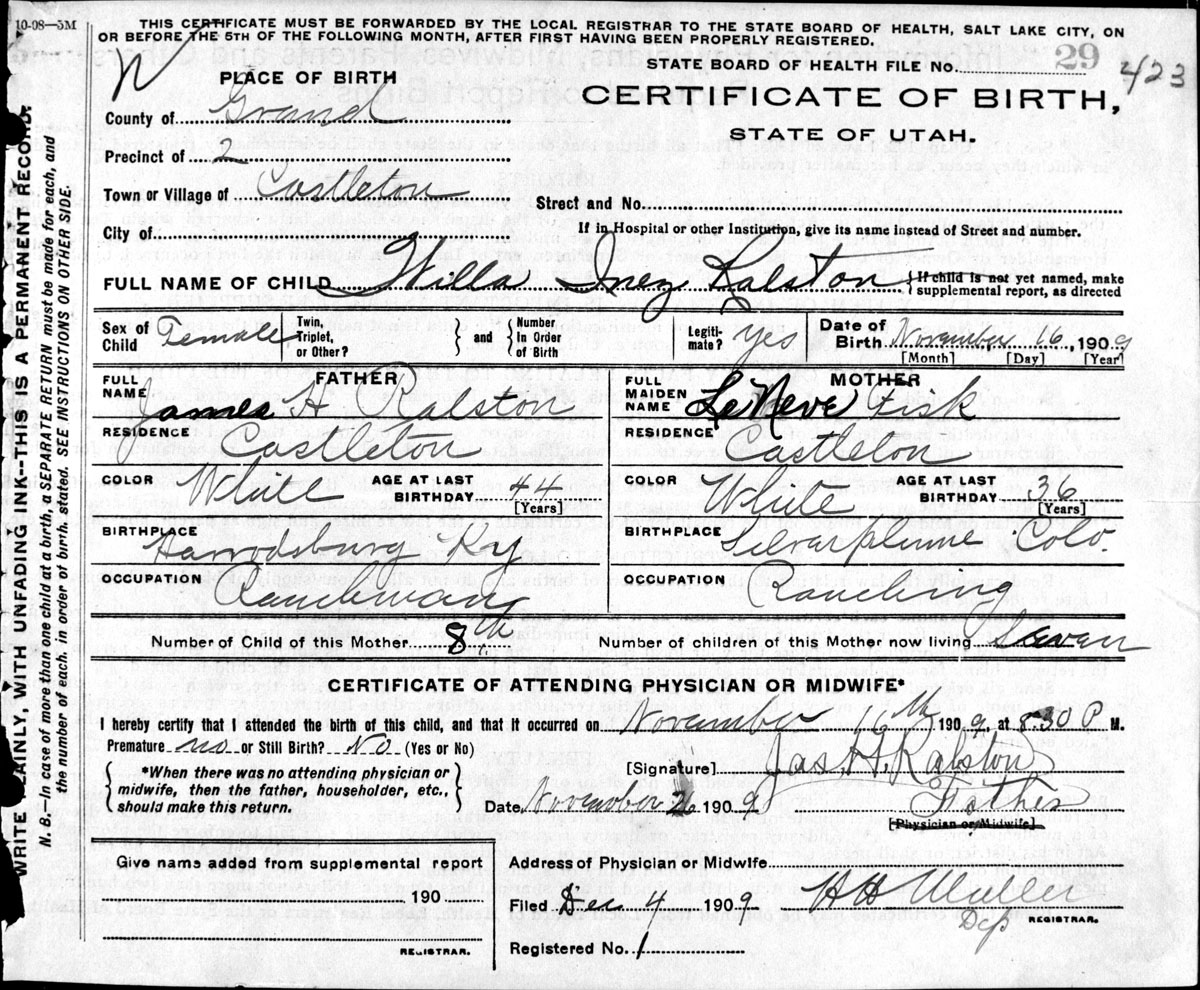 10-08—5M
THIS CERTIFICATE MUST BE FORWARDED BY THE LOCAL REGISTRAR TO THE STATE BOARD OF HEALTH, SALT LAKE CITY, ON
OR BEFORE THE 5TH OF THE FOLLOWING MONTH, AFTER FIRST HAVING BEEN PROPERLY REGISTERED.
STATE BOARD OF HEALTH FILE No. 29 423
N
PLACE OF BIRTH
CERTIFICATE OF BIRTH,
STATE OF UTAH.
County of Grand
Precinct of 2
Town or Village of Castleton
Street and No.
City of
If in Hospital or other Institution, give its name instead of Street and number.
FULL NAME OF CHILD Willa Inez Ralston { If child is not yet named, make
supplemental report, as directed
Sex of Child Female
Twin, Triplet, or Other? } and { Number In Order of Birth
Legitimate? Yes
Date of Birth November 16, 1909
[Month] [Day] [Year]
FATHER
FULL NAME James H Ralston
RESIDENCE Castleton
COLOR White AGE AT LAST BIRTHDAY 44
[Years]
BIRTHPLACE Harrodsburg Ky
OCCUPATION Ranchman
MOTHER
FULL MAIDEN NAME LeNeve Fisk
RESIDENCE Castleton
COLOR White AGE AT LAST BIRTHDAY 36
[Years]
BIRTHPLACE Silverplume Colo.
OCCUPATION Ranching
Number of Child of this Mother 8th Number of children of this Mother now living Seven
CERTIFICATE OF ATTENDING PHYSICIAN OR MIDWIFE*
I hereby certify that I attended the birth of this child, and that it occurred on November 16th 1909, at 8.30 P M.
Premature no or Still Birth? No (Yes or No)
{ *When there was no attending physician or midwife, then the father, householder, etc., should make this return. }
[Signature] Jas H. Ralston
Father
[Physician or Midwife]
Date November 26 1909
Give name added from supplemental report
190
REGISTRAR.
Address of Physician or Midwife
Filed Dec 4 1909 H H
Dep REGISTRAR.
Registered No. 1
WRITE PLAINLY, WITH UNFADING INK--THIS IS A PERMANENT RECORD.
N. B.—In case of more than one child at a birth, a SEPARATE RETURN must be made for each, and
the number of each, in order of birth, stated. SEE INSTRUCTIONS ON OTHER SIDE.